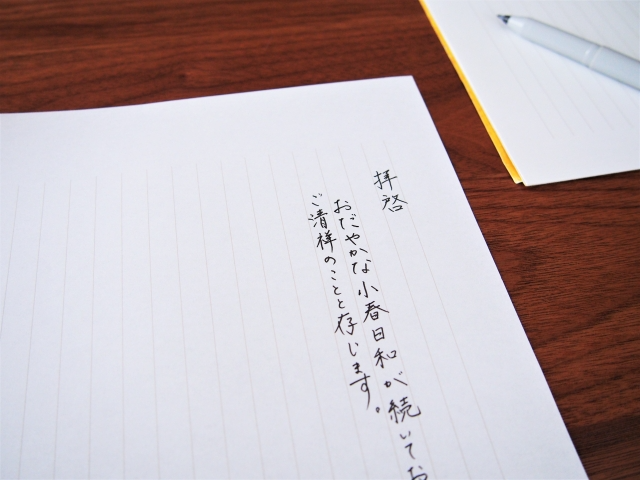 拝啓
おだやかな小春日和が続いてお
ご清祥のことと存じます。